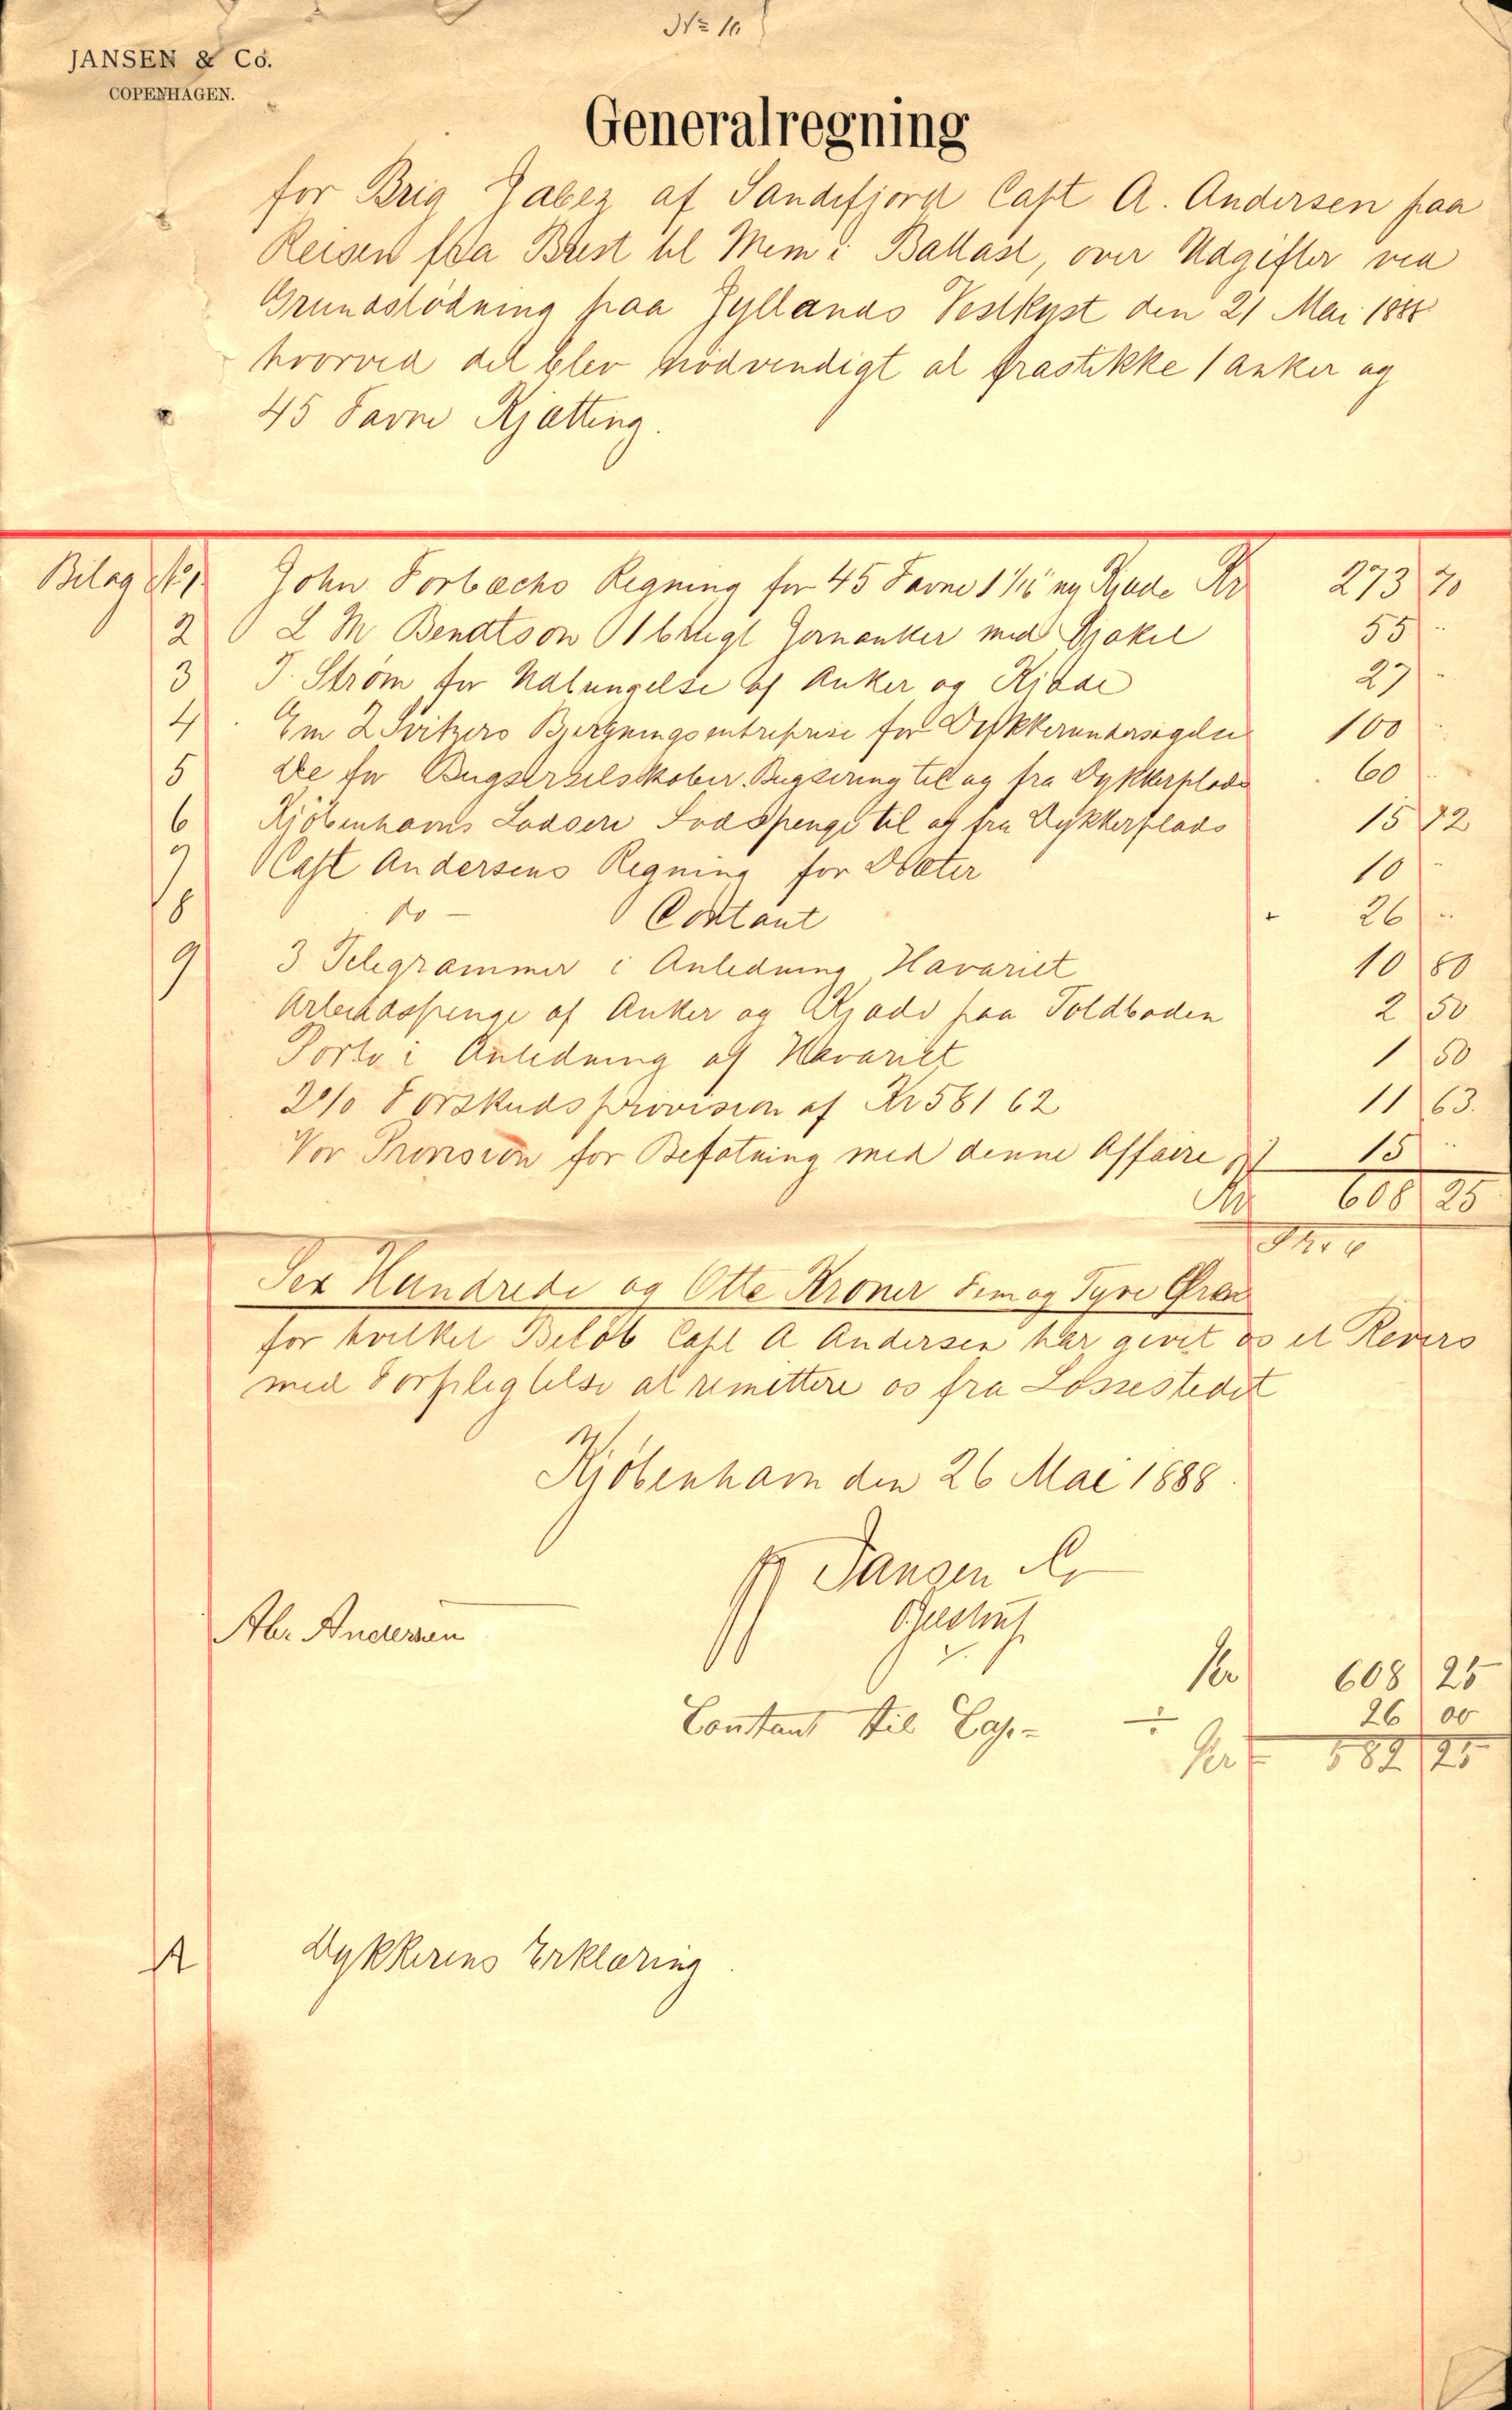 No 10
JANSEN & Co.
COPENHAGEN.
Generalregning
for Brig Jabez af Sandefjord Capt A. Andersen paa
Reisen fra Brest til Mem i Ballast, over Udgifter ved
Grundstödning paa Jyllands Vestkyst den 21 Mai 1888
hvorved det blev nödvendigt at frastikke 1 anker og
45 Favne Kjætting.
Bilag No 1 John Forbachs Regning for 45 Favne 1 1/16 ny Kjæde Kr 273 70
2 L M Bendtson 1 brugt Jernanker med Sjakel 55 "
3 J. Ström for Udbringelse af Anker og Kjæde 27 "
4 Em Z Svitzers Bjergningsentreprise for Dykkerundersøgelse 100 "
5 De for Bugserselskaber. Bugsering til og fra Dykkerplads 60 "
6 Kjöbenhavns Lodseri Lodspenge til og fra Dykkerplads 15 12
7 Capt Andersens Regning for Diæter 10 "
8 do - Contant 26 "
9 3 Telegrammer i Anledning Havariet 10 80
Arbeidspenge af Anker og Kjæde paa Toldboden 2 50
Porto i Anledning af Havariet 1 50
2% Forskudsprovision af Kr 581 62 11 63.
Vor Provision for Befatning med denne Affaire 15 "
Kr 608 25
Sex Hundrede og Otte Kroner Fem og Tyve Øre
for hvilket Belöb Capt A Andersen har givet os et Revers
med Forpligtelse at remittere os fra Lossestedet
Kjöbenhavn den 26 Mai 1888.
Jansen & Co
Ab. Andersen
Kr 608 25
Contant til Cap. ÷ 26 00
Kr 582 25
A Dykkerens Erklæring.